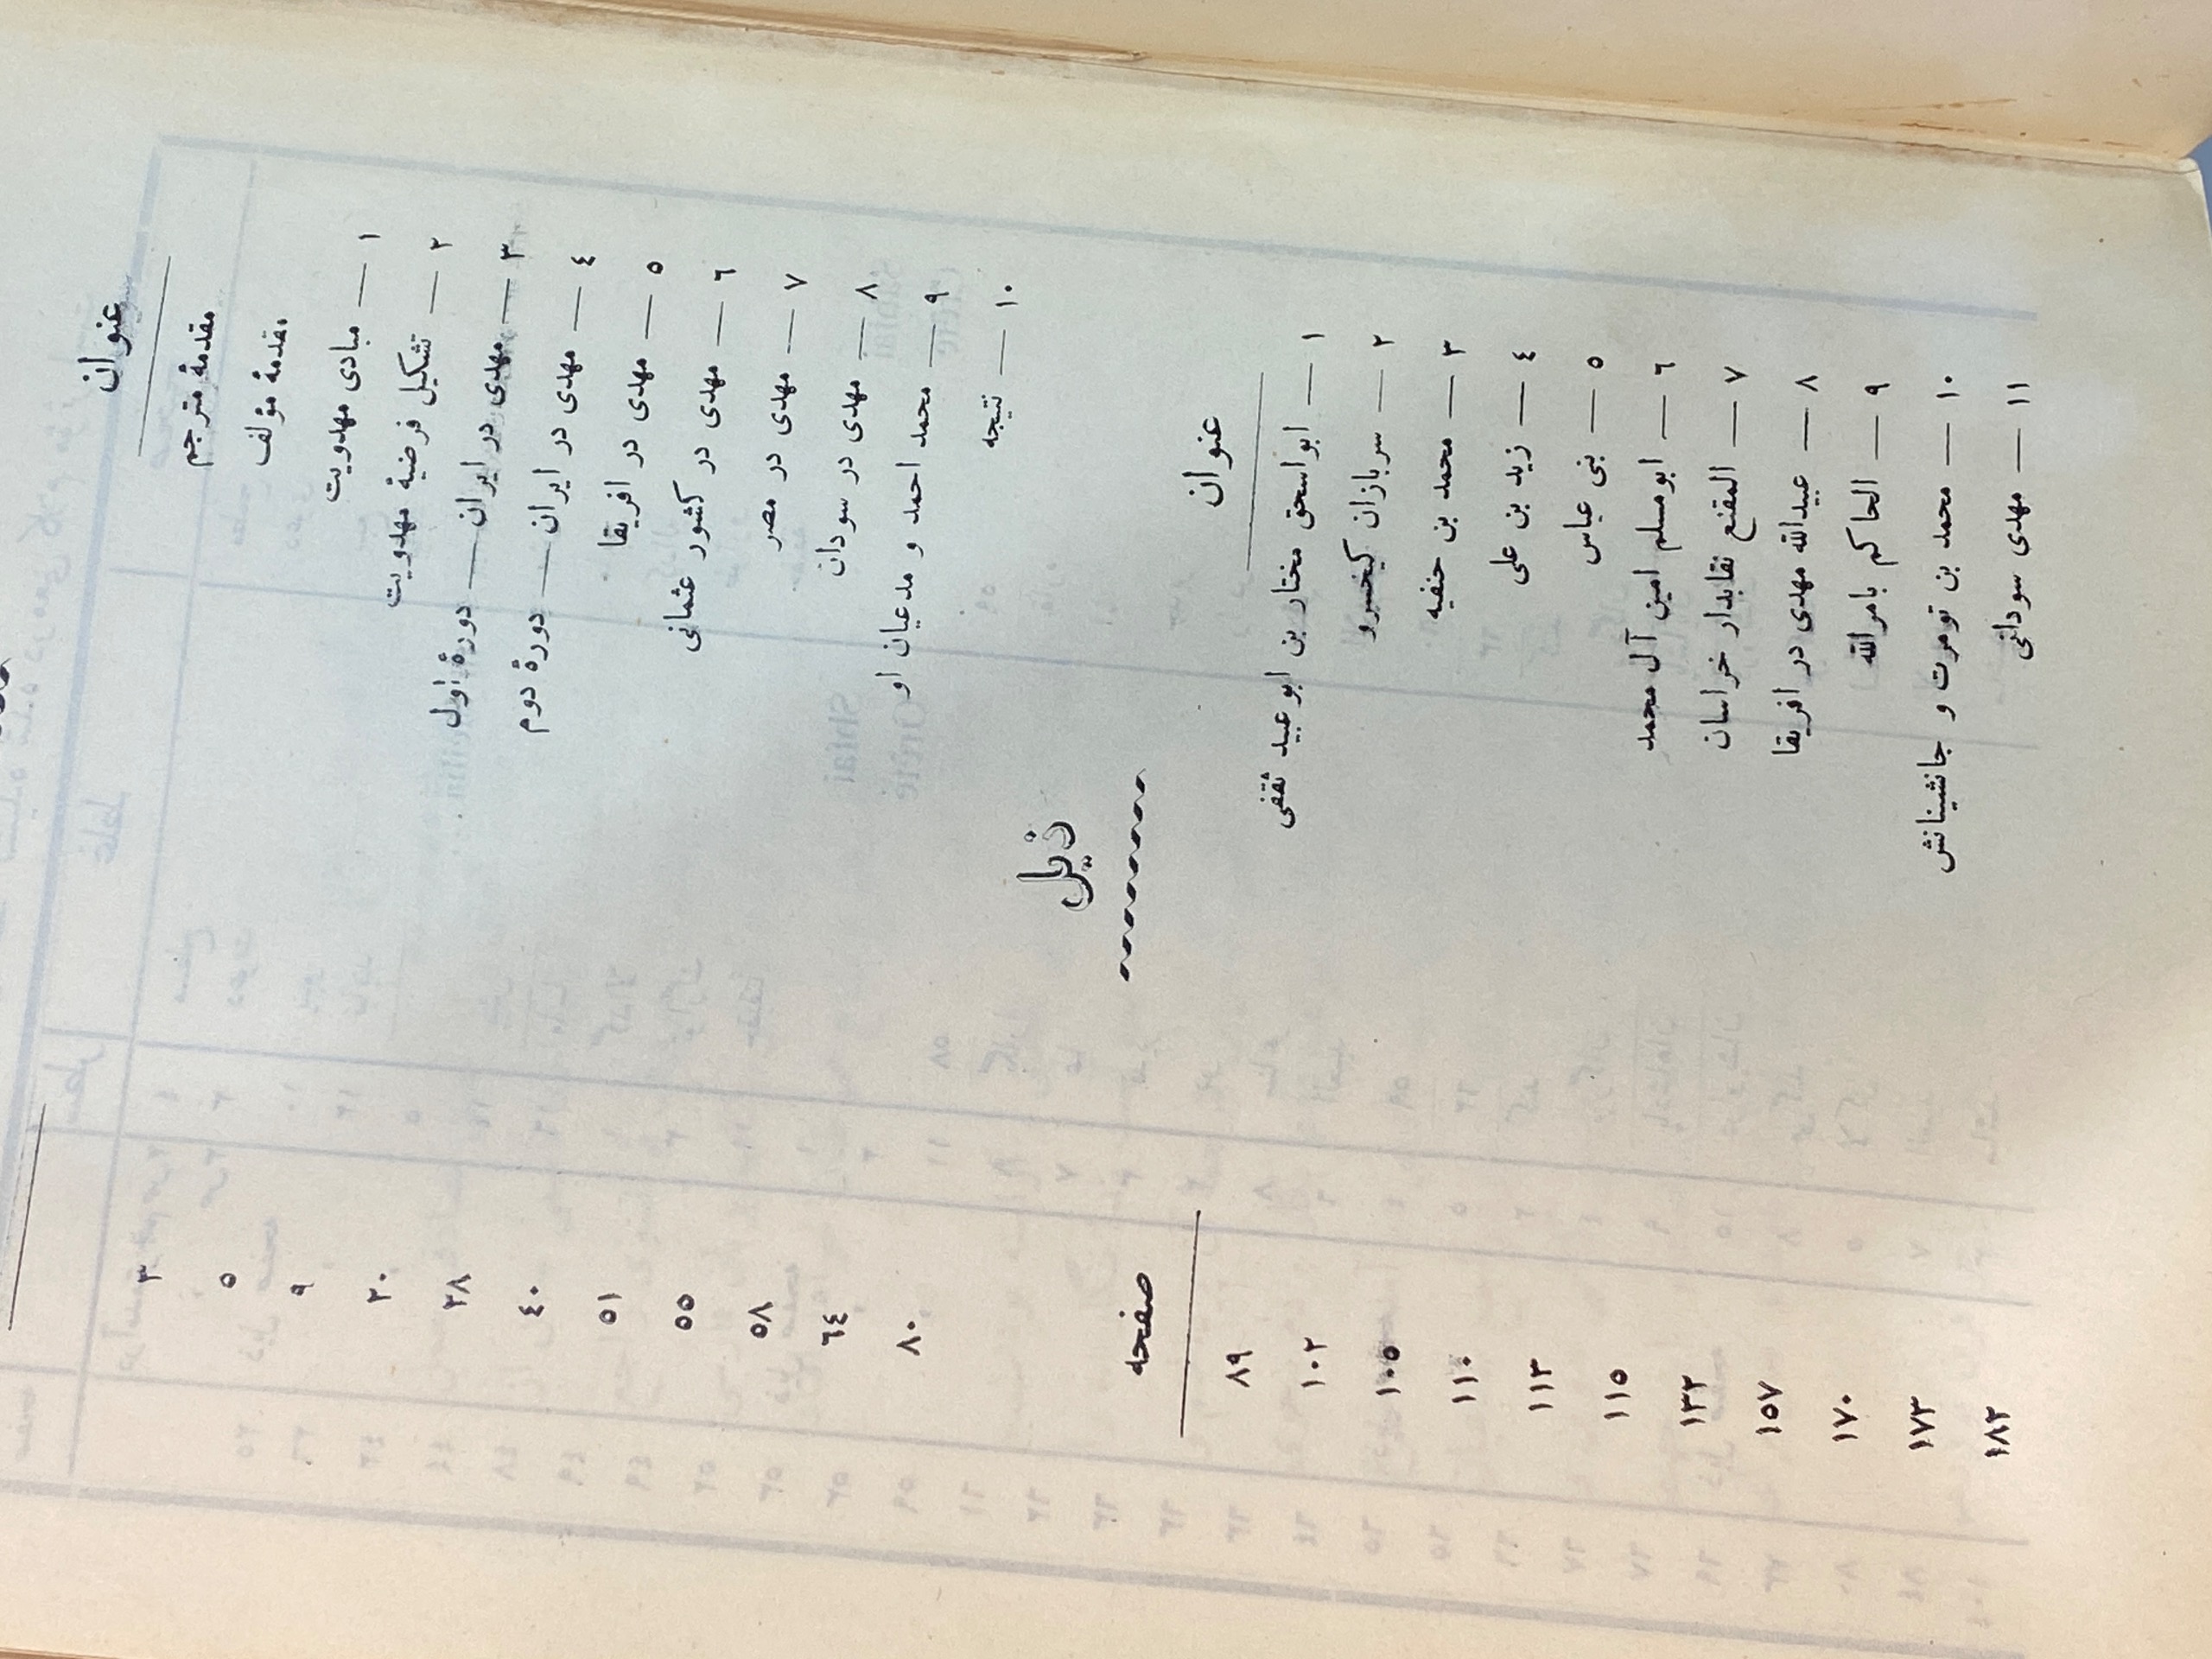 عنوان
مقدمهٔ مترجم ٣
مقدمهٔ مؤلف ٥
١ — مبادی مهدویت ٩
٢ — تشکیل فرضیهٔ مهدویت ٢٠
٣ — مهدی در ایران — دورهٔ اول ٢٨
٤ — مهدی در ایران — دورهٔ دوم ٤٠
٥ — مهدی در افریقا ٥١
٦ — مهدی در کشور عثمانی ٥٥
٧ — مهدی در مصر ٥٨
٨ — مهدی در سودان ٦٤
٩ — محمد احمد و مدعیان او ٨٠
١٠ — نتیجه
ذیل
عنوان صفحه
١ — ابواسحق مختار بن ابوعبید ثقفی ٨٩
٢ — سربازان کیخسرو ١٠٢
٣ — محمد بن حنفیه ١٠٥
٤ — زید بن علی ١١٠
٥ — بنی عباس ١١٣
٦ — ابومسلم امین آل محمد ١١٥
٧ — المقنع نقابدار خراسان ١٣٢
٨ — عبیدالله مهدی در افریقا ١٥٧
٩ — الحاکم بامرالله ١٧٠
١٠ — محمد بن تومرت و جانشینانش ١٧٣
١١ — مهدی سودانی ١٨٢